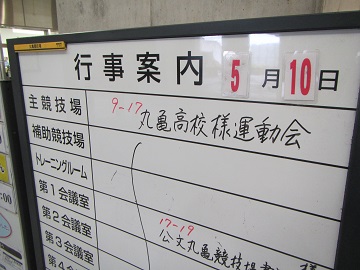 行事案内 5月10日
主競技場 9-17 丸亀高校様運動会
補助競技場
トレーニングルーム
第1会議室
第2会議室 17-19
第3会議室 公文丸亀競技場
第4